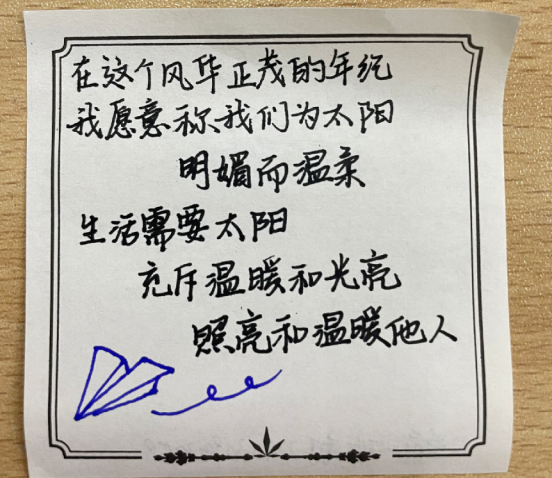 在这个风华正茂的年纪
我愿意称我们为太阳
明媚而温柔
生活需要太阳
充斥温暖和光亮
照亮和温暖他人